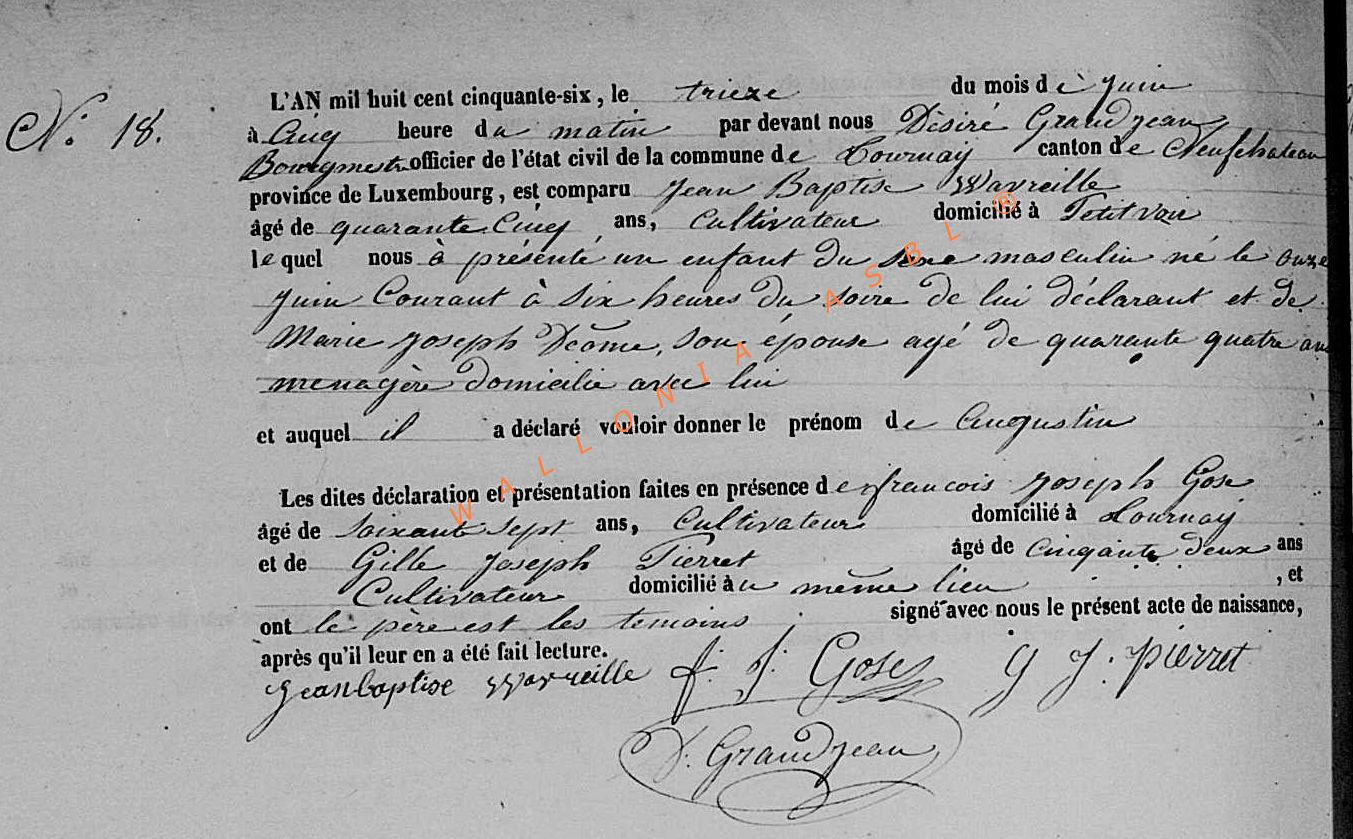 N° 18.
L'AN mil huit cent cinquante-six, le trieze du mois dè juin
à Cinq heure du matin par devant nous Dèsiré Grandjean
Bourgmestre officier de l'état civil de la commune de Tournay canton de Neufchateau
province de Luxembourg, est comparu Jean Baptise Wavreille
âgé de quarante Cinq ans, Cultivateur domicilié à Petitvoir
lequel nous à présenté un enfant du sexe masculin né le onze
juin Courant à six heures du soire de lui déclarant et de
Marie Joseph Dèome, son épouse agé de quarante quatre ans
menagère domicilie avec lui
et auquel il a déclaré vouloir donner le prénom de Augustin
Les dites déclaration et présentation faites en présence de francois Joseph Gose
âgé de soixante sept ans, Cultivateur domicilié à Tournay
et de Gille Joseph Pierret âgé de cinqante deux ans
Cultivateur domicilié au même lieu , et
ont le père est les temoins signé avec nous le présent acte de naissance,
après qu'il leur en a été fait lecture.
Jeanbaptise Wavreille f. j. Gose g J. pierret
D. Grandjean
WALLONIA ASBL ®